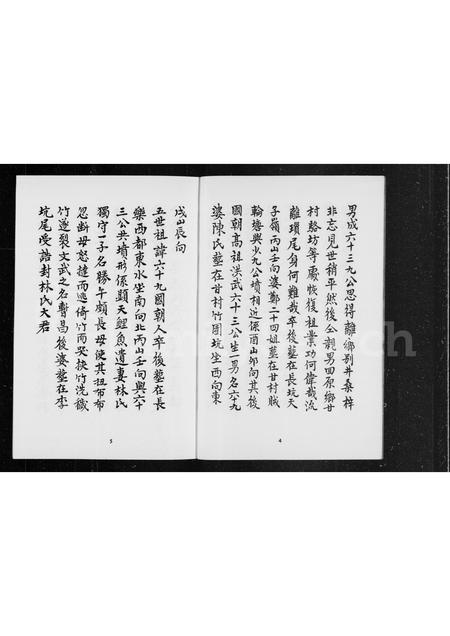 男成六十三九公思得離鄉別井桑梓
非忘見世稍平然後仝親男四原鄉甘
村駱坊等處恢復祖業功何偉哉流
離瑣尾身何難哉卒後塟在長坑天
子嶺丙山壬向婆鄭二十四姐塟在甘村賊
輪塘與少九公墳相近係酉山卯向其後
國朝高祖洪武六十三公生一男名六十九
婆陳氏塟在甘村竹園坑坐西向東
4
戌山辰向
五世祖諱六十九國朝人卒後塟在長
樂西都東水坐南向北丙山壬向與六十
三公共墳形係顥天鯉魚遺妻林氏
獨守一子名勝午頗長母使其扭布布
忽斷母怒撻而逃倚竹而哭挾竹洗鐵
竹遂裂文武之名暫昌後婆塟在李
坑尾受誥封林氏大君
5